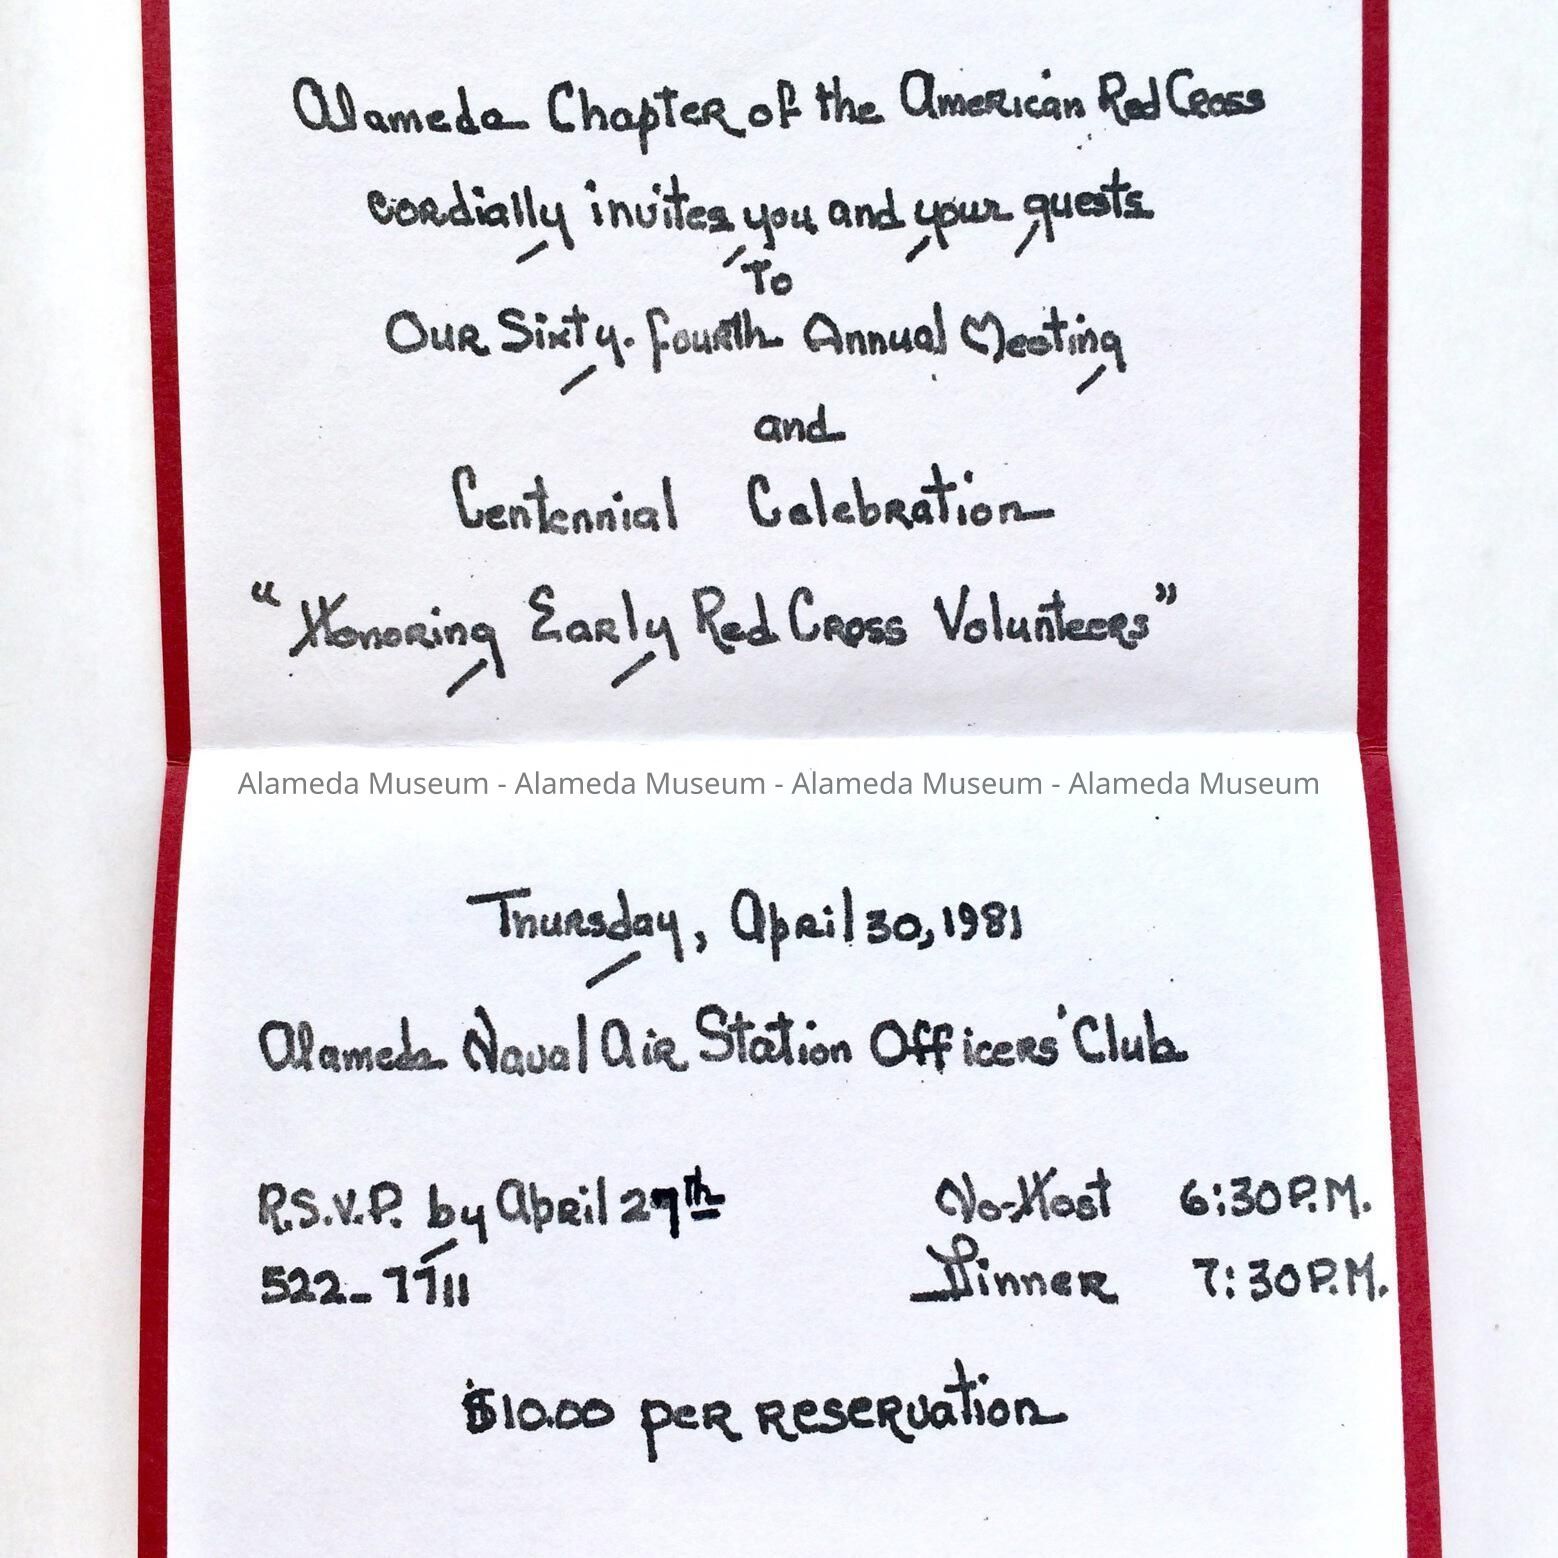 Alameda Chapter of the American Red Cross
cordially invites you and your guests
To
Our Sixty-fourth Annual Meeting
and
Centennial Celebration
"Honoring Early Red Cross Volunteers"
Alameda Museum - Alameda Museum - Alameda Museum - Alameda Museum
Thursday, April 30, 1981
Alameda Naval Air Station Officers' Club
R.S.V.P. by April 27th No-Host 6:30 P.M.
522-7711 Dinner 7:30 P.M.
$10.00 per reservation